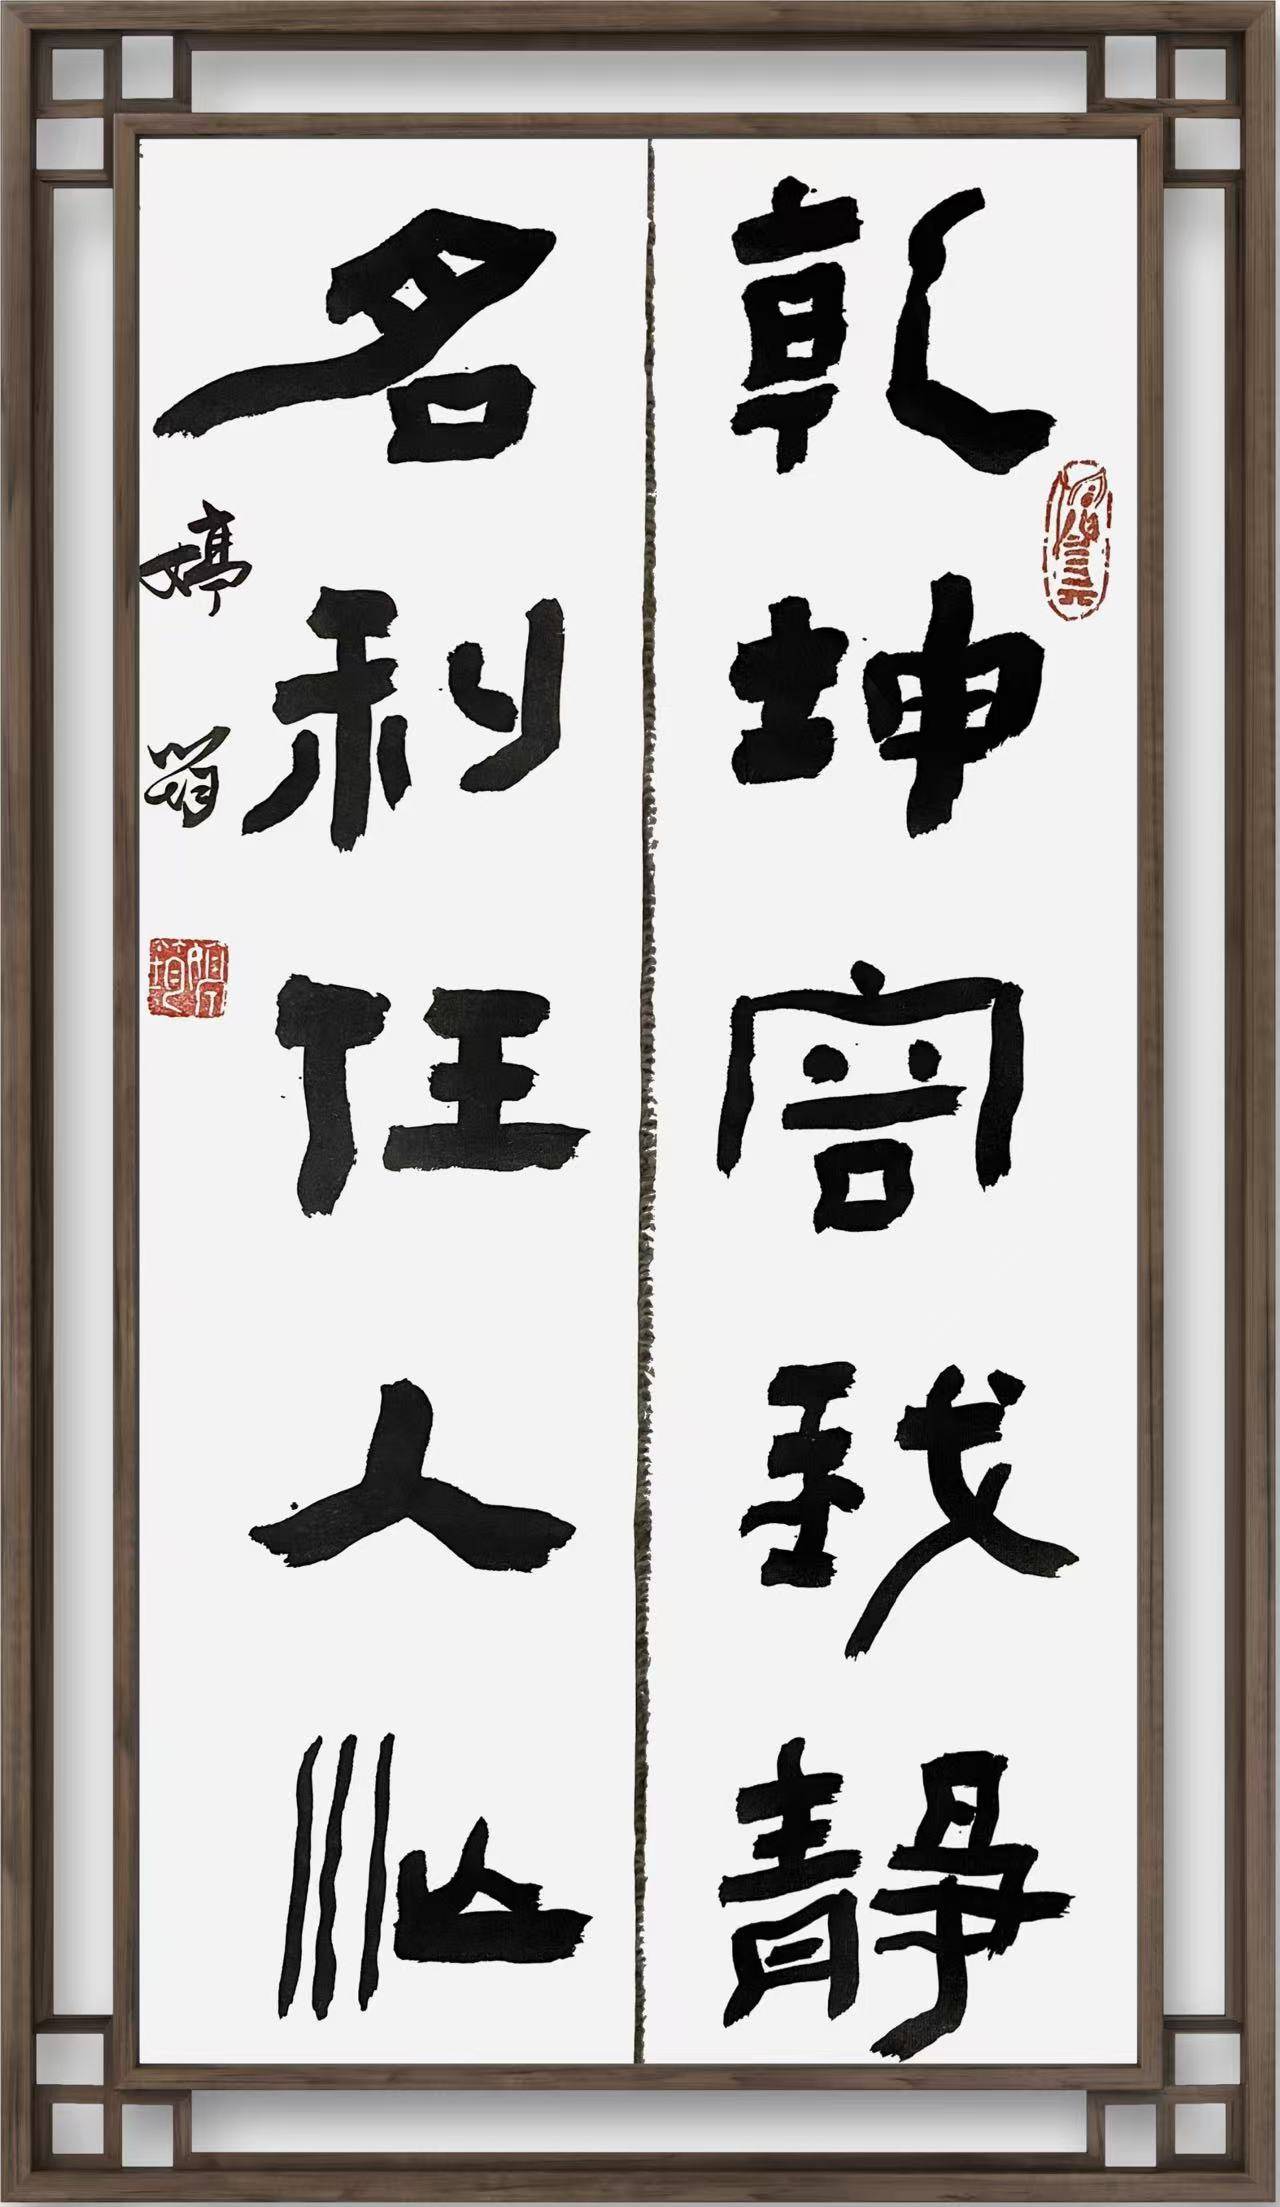 乾坤容我靜
名利任人忙
婷